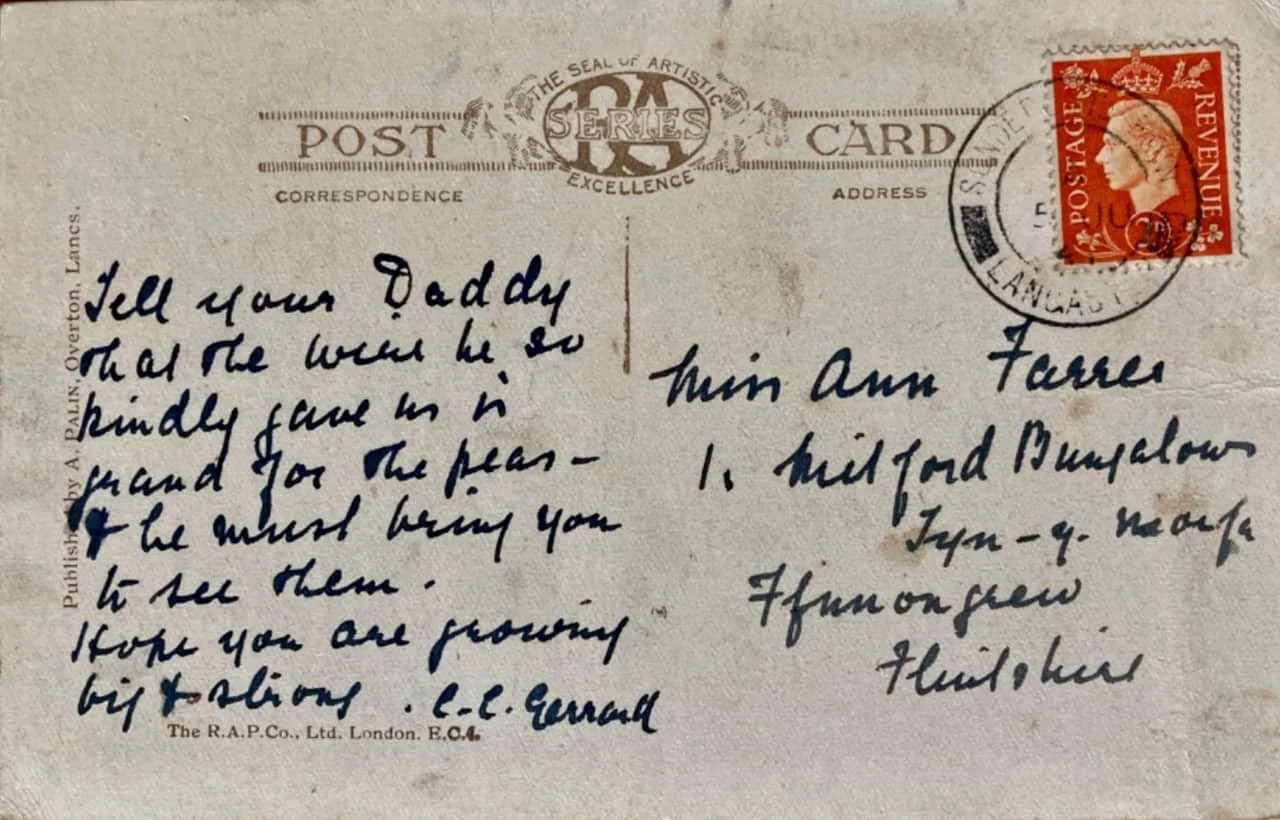 THE SEAL OF ARTISTIC
RA
SERIES
EXCELLENCE
POST CARD
CORRESPONDENCE
ADDRESS
POSTAGE REVENUE
LANCAST
Published by A. PALIN, Overton, Lancs.
Tell your Daddy
that the wire he so
kindly gave us is
grand for the peas –
& he must bring you
to see them.
Hope you are growing
big & strong. C.C. Gerrard
Miss Ann Farrer
1. Milford Bungalows
Tyn-y-morfa
Ffynnongrew
Flintshire
The R.A.P.Co., Ltd. London. E.C.4.